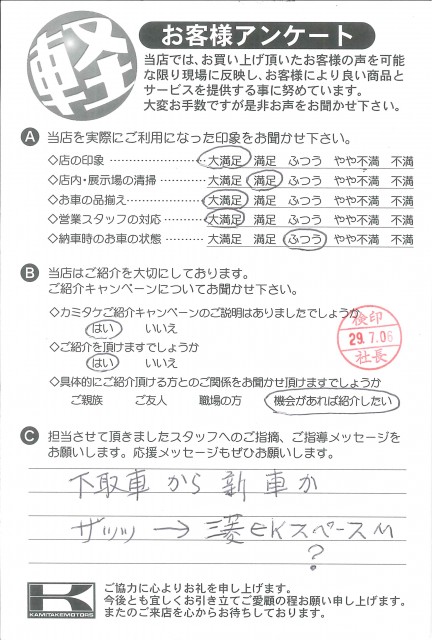 軽
お客様アンケート
当店では、お買い上げ頂いたお客様の声を可能
な限り現場に反映し、お客様により良い商品と
サービスを提供する事に努めています。
大変お手数ですが是非お声をお聞かせ下さい。
A 当店を実際にご利用になった印象をお聞かせ下さい。
◇店の印象 ………………… 大満足 満足 ふつう やや不満 不満
◇店内・展示場の清掃 ……… 大満足 満足 ふつう やや不満 不満
◇お車の品揃え …………… 大満足 満足 ふつう やや不満 不満
◇営業スタッフの対応 ……… 大満足 満足 ふつう やや不満 不満
◇納車時のお車の状態 ……… 大満足 満足 ふつう やや不満 不満
B 当店はご紹介を大切にしております。
ご紹介キャンペーンについてお聞かせ下さい。
◇カミタケご紹介キャンペーンのご説明はありましたでしょうか
はい いいえ
◇ご紹介を頂けますでしょうか
はい いいえ
検印
29.7.06
社長
◇具体的にご紹介頂ける方とのご関係をお聞かせ頂けますでしょうか
ご親族 ご友人 職場の方 機会があれば紹介したい
C 担当させて頂きましたスタッフへのご指摘、ご指導メッセージを
お願いします。応援メッセージもぜひお願いします。
下取車から新車か
ザッツ → 三菱eKスペースM
?
K
KAMITAKEMOTORS
ご協力に心よりお礼を申し上げます。
今後とも宜しくお引き立てご愛顧の程お願い申し上げます。
またのご来店を心からお待ちしております。